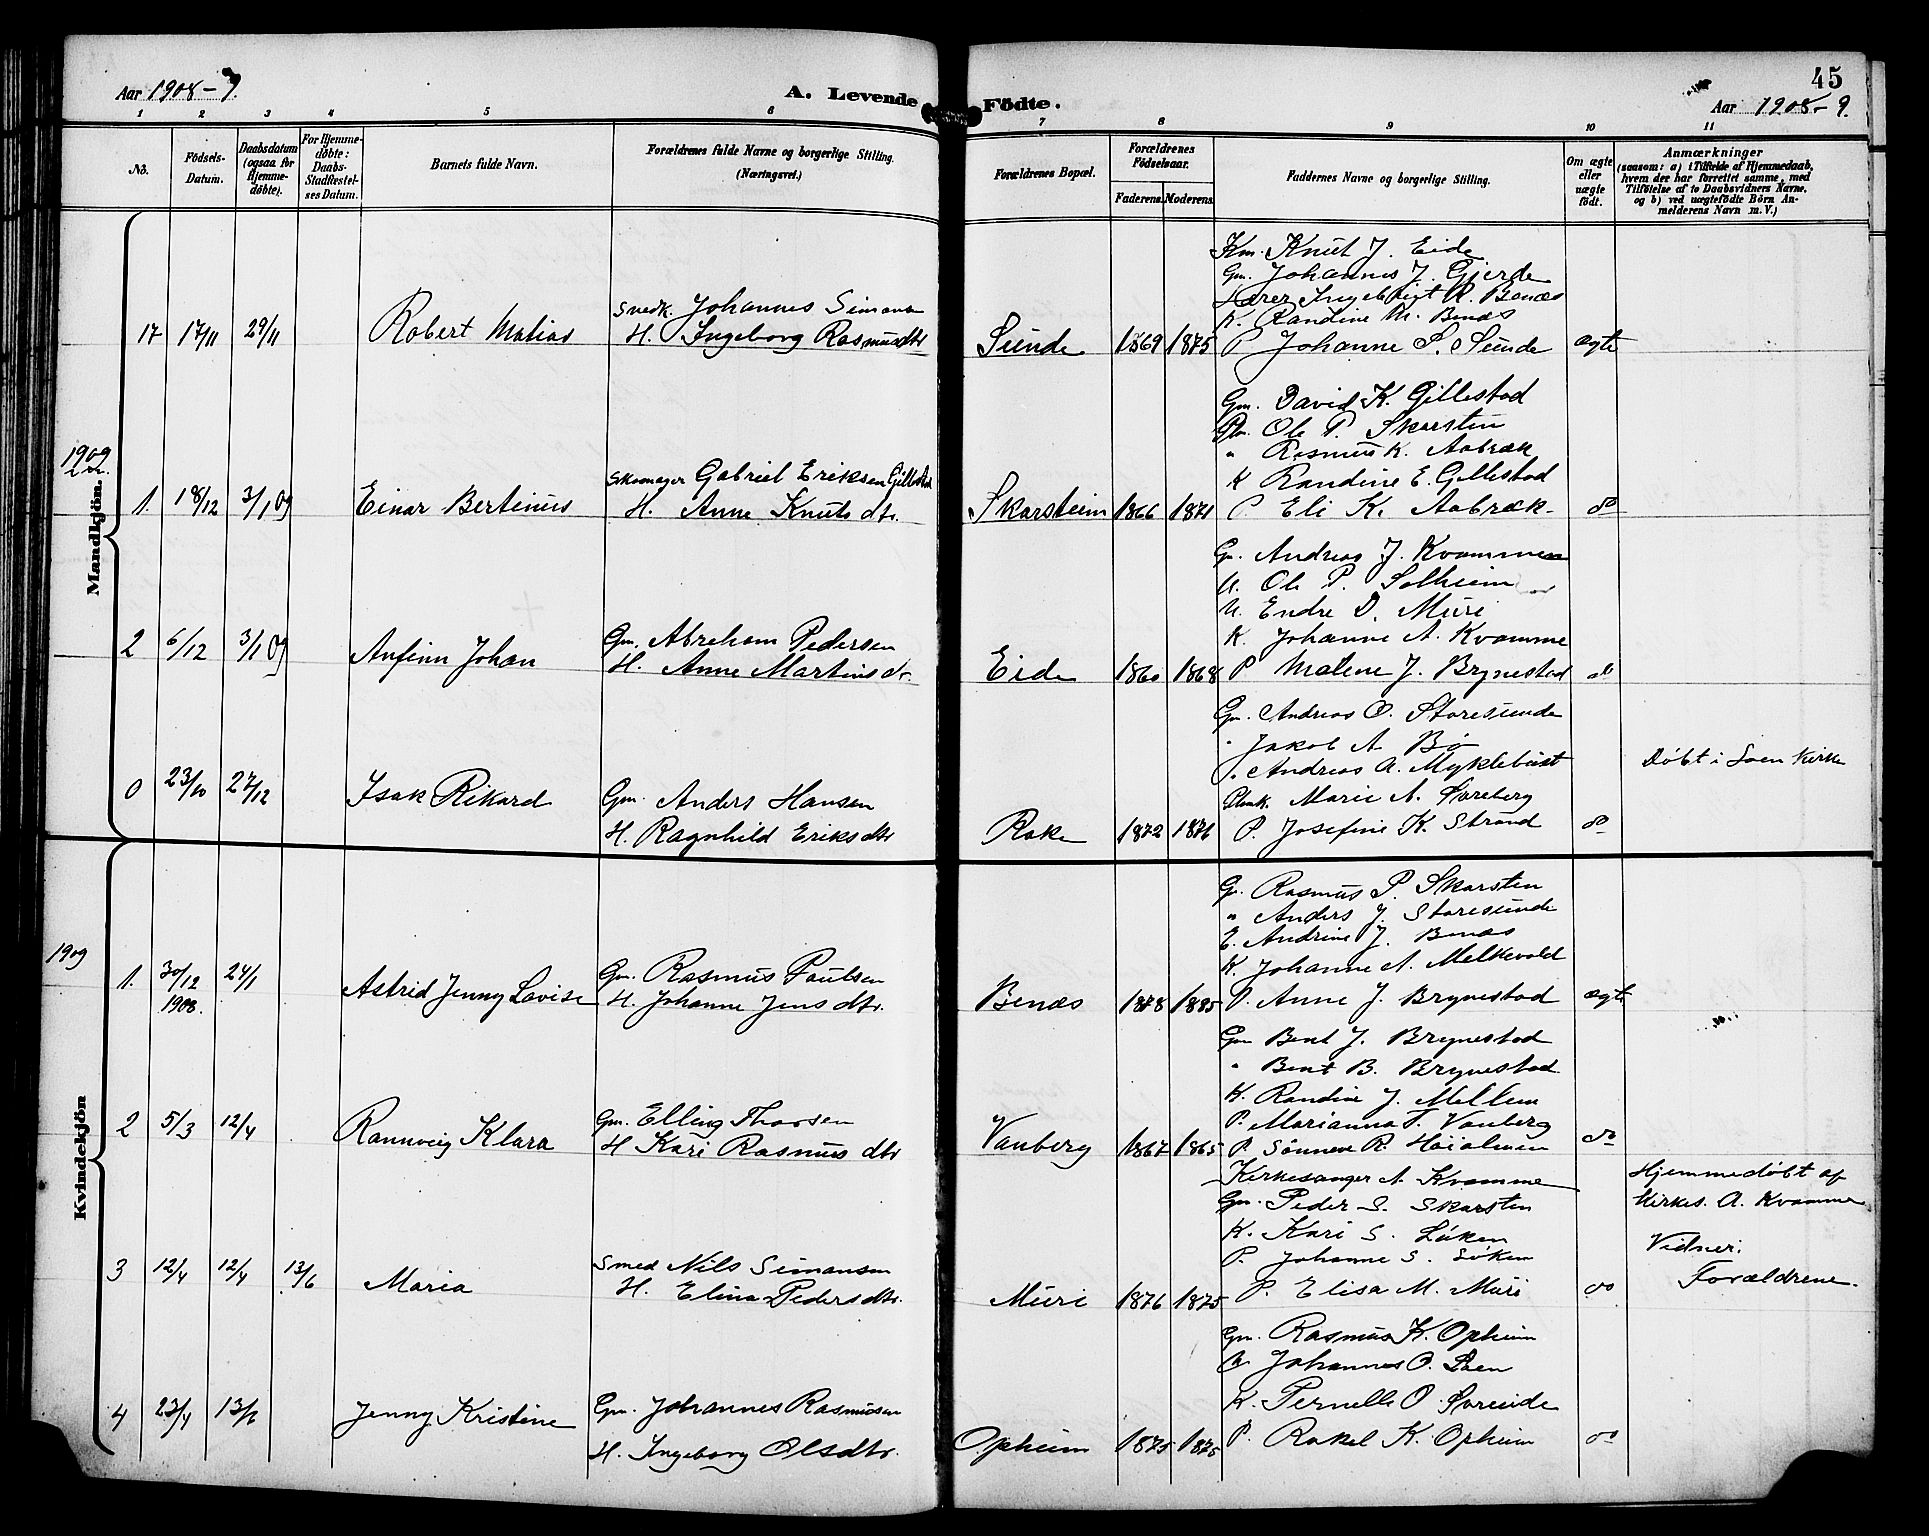 Aar 1908-9.
A. Levende Födte.
45
Aar 1908-9.
1 2 3 4 5 6 7 8 9 10 11
No.
Födsels-Datum.
Daabsdatum (ogsaa for Hjemme-döbte).
For Hjemme-döbte: Daabs-Stadfæstel-ses Datum.
Barnets fulde Navn.
Forældrenes fulde Navne og borgerlige Stilling. (Næringsvei.)
Forældrenes Bopæl.
Forældrenes Födselsaar.
Faderens. Moderens.
Faddernes Navne og borgerlige Stilling.
Om ægte eller uægte födt.
Anmærkninger
(saasom: a) i Tilfælde af Hjemmedaab,
hvem der har forrettet samme, med
Tilföielse af to Daabsvidners Navne,
og b) ved uægtefödte Börn An-
melderens Navn m. V.)
Mandkjön.
Km. Knut J. Eide
Gm. Johannes J. Gjerde
Lærer Ingebrigt R. Benæs
K. Randine M. Benæs
Snedk. Johannes Simons
17 17/11 29/11 Robert Matias H. Ingeborg Rasmusdtr Sunde 1869 1875 P. Johanne S. Sunde ægte
Gm. David K. Gillestad
Ole P. Skarsten
" Rasmus K. Aabræk
1909
Skomager Gabriel Eriksen Gillestad K Randine E. Gillestad
1. 18/12 3/1 09 Einar Bertinus H. Anne Knutsdtr. Skarsteim 1866 1871 P. Eli K. Aabræk do
G. Andreas J. Kvammen
U. Ole P. Solheim
U. Endre D. Muri
Gm. Abraham Pedersen K. Johanne A. Kvamme
2 6/12 3/1 09 Anfinn Johan H. Anne Martinsdr. Eide 1860 1868 P. Malene J. Brynestad do
Gm. Andreas O. Storesunde
" Jakob A Bø
" Andreas A. Myklebust Døbt i Loen Kirke
0 23/10 27/12 Isak Rikard Gm. Anders Hansen Marie A. Særeberg
H. Ragnhild Eriksdtr Rake 1872 1871 P. Josefine K. Strand do
Kvindekjön
G. Rasmus P. Skarsten
" Anders J. Storesunde
E. Andrine J. Benæs
1909
Gm. Rasmus Paulsen K. Johanne A. Melkevold
1. 30/12 1908. 24/1 Astrid Jenny Lovise H. Johanne Jensdtr. Benæs 1878 1885 P. Anne J. Brynestad ægte
Gm Bent J. Brynestad
" Bent B. Brynestad
K. Randine J. Mellem
Gm. Elling Thorsen P. Marianna T. Vanberg
2 5/3 12/4 Rannveig Klara H Kari Rasmusdtr Vanberg 1867 1865 P. Sønneve R. Høialmen do
Kirkesanger A. Kvamme Hjemmedøbt af
Gm. Peder S. Skarsten Kirkes. A. Kvamme
K. Kari S. Løken
Smed Nils Simonsen P. Johanne S. Løken Vidner:
3 12/4 12/4 13/6 Maria H. Elina Pedersdtr. Muri 1876 1875 P. Elisa M. Muri do Forældrene.
Gm. Rasmus K. Opheim
Johannes O. Loen
Gm. Johannes Rasmussen K. Pernelle O. Særeide
4 23/4 13/6 Jenny Kristine H. Ingeborg Olsdtr. Opheim 1875 1875 P. Rakel K. Opheim do